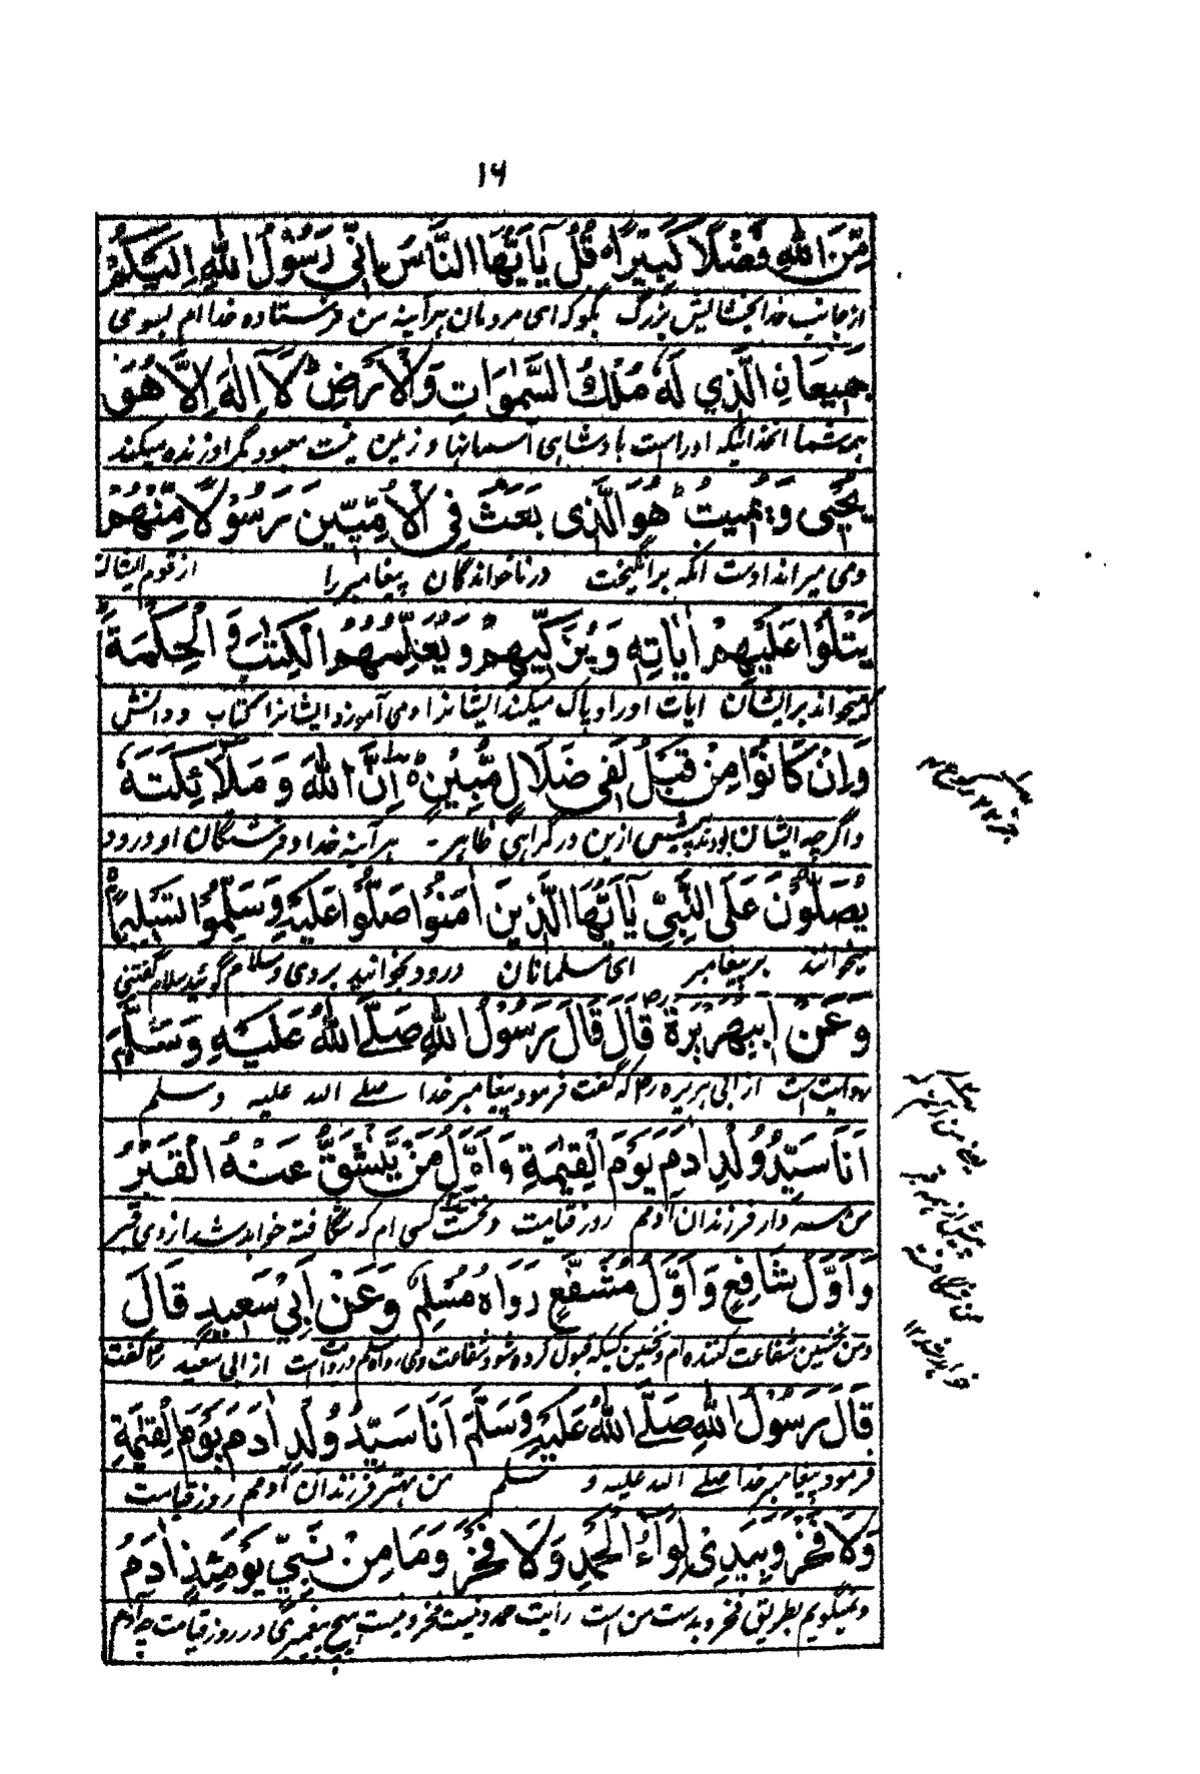 ١٦
مِّنَ اللّٰهِ فَضْلًا كَبِيْرًا ه قُلْ يَآ اَيُّهَا النَّاسُ اِنِّيْ رَسُوْلُ اللّٰهِ اِلَيْكُمْ
از جانب خدا بخشایش بزرگ بگو که ای مردمان هر آینه من فرستاده خدا ام بسوی
جَمِيْعَانِ الَّذِي لَهٗ مُلْكُ السَّمٰوَاتِ وَالْاَرْضِ ط لَآ اِلٰهَ اِلَّا هُوَ
همه شما آنخدائیکه او راست بادشاهی آسمانها و زمین نیست معبود مگر او زنده میکند
يُحْيِى وَيُمِيتُ ط هُوَ الَّذِى بَعَثَ فِى الْاُمِّيِّيْنَ رَسُوْلًا مِّنْهُمْ
و می میراند اوست آنکه برانگیخت در ناخواندگان پیغامبر را از قوم ایشان
يَتْلُوْا عَلَيْهِمْ اٰيَاتِهٖ وَيُزَكِّيْهِمْ وَيُعَلِّمُهُمُ الْكِتٰبَ وَ الْحِكْمَةَ
که میخواند بر ایشان آیات او را و پاک میکند ایشانرا و می آموزد ایشانرا کتاب و دانش
وَاِنْ كَانُوْا مِنْ قَبْلُ لَفِى ضَلَالٍ مُّبِيْنٍ ه اِنَّ اللّٰهَ وَ مَلَائِكَتَهٗ
و اگرچه ایشان بودند پیش ازین در گمراهی ظاهر - هر آینه خدا و فرشتگان او درود
يُصَلُّوْنَ عَلَى النَّبِىِّ يَآ اَيُّهَا الَّذِيْنَ اٰمَنُوْا صَلُّوْا عَلَيْهِ وَسَلِّمُوْا تَسْلِيْمًا
میخوانند بر پیغامبر ای مسلمانان درود بخوانید بر وی و سلام گوئید سلام گفتنی
وَعَنْ اَبِيْهُرَيْرَةَ رض قَالَ قَالَ رَسُوْلُ اللّٰهِ صَلَّے اللّٰهُ عَلَيْهِ وَسَلَّمَ
روایت است از ابی هریره رض که گفت فرمود پیغامبر خدا صلے الله علیه وسلم
اَنَا سَيِّدُ وُلْدِ اٰدَمِ يَوْمَ الْقِيٰمَةِ وَ اَوَّلُ مَنْ يَّنْشَقُّ عَنْهُ الْقَبْرُ
من سردار فرزندان آدمم روز قیامت و نخست کسی ام که شگافته خواهد شد از وی قبر
وَ اَوَّلُ شَافِعٍ وَ اَوَّلُ مُشَفَّعٍ رَوَاهُ مُسْلِمٌ وَعَنْ اَبِيْ سَعِيدٍ قَالَ
و من نخستین شفاعت کننده ام و نخستین کسیکه قبول کرده شود شفاعت وی رواه مسلم و روایت است از ابی سعید رض گفت
قَالَ رَسُوْلُ اللّٰهِ صَلَّے اللّٰهُ عَلَيْهِ وَسَلَّمَ اَنَا سَيِّدُ وُلْدِ اٰدَمَ يَوْمَ الْقِيٰمَةِ
فرمود پیغامبر خدا صلے الله علیه و سلم من مهتر فرزندان آدمم روز قیامت
وَلَا فَخْرَ وَبِيَدِىْ لِوَآءُ الْحَمْدِ وَلَا فَخْرَ وَمَا مِنْ نَبِيٍّ يَوْمَئِذٍ اٰدَمُ
و نمیگویم بطریق فخر و بدست من است رایت حمد و نیست فخر و نیست هیچ پیغمبری در روز قیامت چه آدم